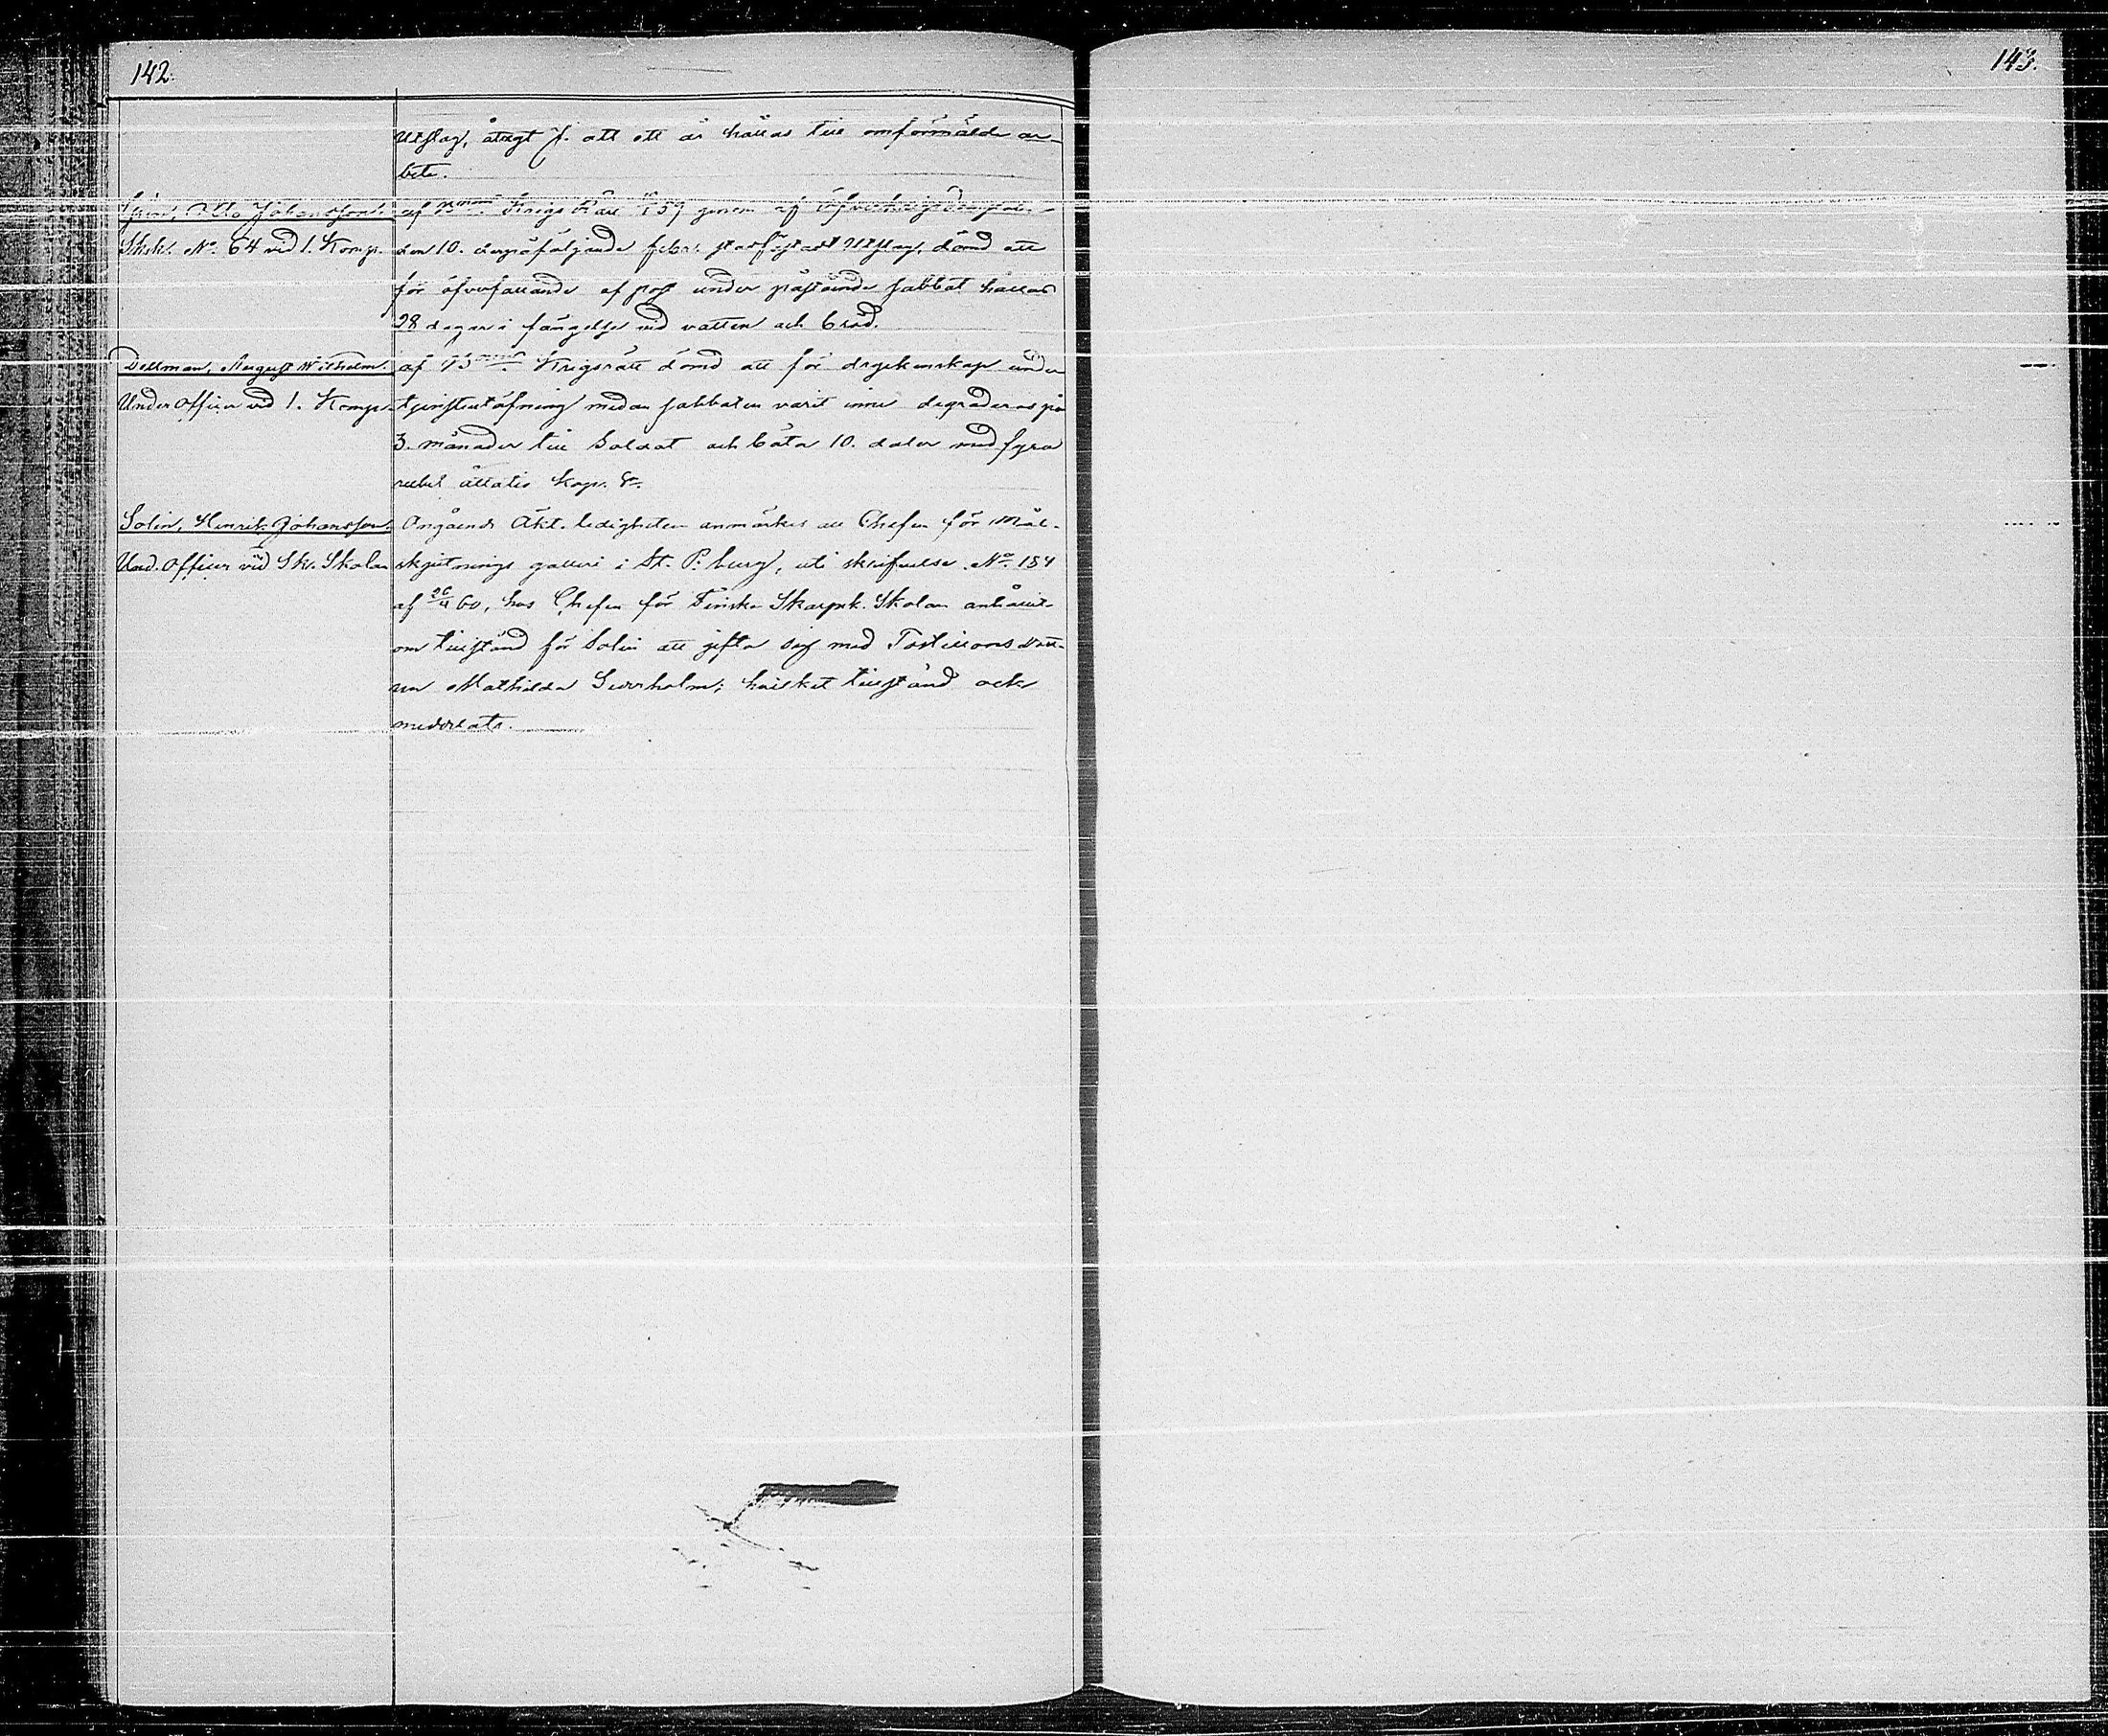 142.
143.
Utslag, ålagt J. att ett år hållas till omförmälde ar-
bete.
Otto Johansson.
Sksk. No. 64 vid 1. Komp.
af Krigs Rätt 59 genom af
den 10. derpåföljande febr. stadfästadt Utslag, dömd att
för öfverfallande af post under påstående sabbat hållas
28 dagar i fängelse vid vatten och bröd.
Dellman, August Wilhelm.
Under Officer vid 1. Komp.
af Krigsrätt dömd att för dryckenskap under
tjenstutöfning medan sabbaten varit inne degraderas på
3. månader till Soldat och böta 10. daler med fyra
rubel åttatio kop. Sr.
Solin, Henrik Johansson.
Und. Officer vid Sk. Skolan
Angående Äkt. ledigheten anmärkes att Chefen för Mål-
skjutnings galleri i St. P:burg, uti skrifvelse No 154
af 26/4 60, hos Chefen för Finska Skarpsk. Skolan anhållit
om tillstånd för Solin att gifta sig med Postillons dott-
ren Mathilda hvilket tillstånd ock
meddelats.